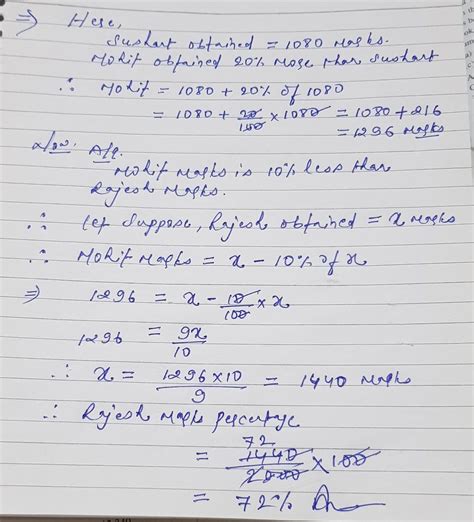 ⇒ Here,
Sushart obtained = 1080 Marks.
Mohit obtained 20% more than Sushart
∴ Mohit = 1080 + 20% of 1080
= 1080 + 20/100 × 1080 = 1080 + 216
= 1296 Marks
Now, A/q.
Mohit Marks is 10% less than
Rajesh Marks.
∴ let Suppose, Rajesh obtained = x Marks
∴ Mohit Marks = x - 10% of x
⇒ 1296 = x - 10/100 × x
1296 = 9x/10
∴ x = 1296×10/9 = 1440 Marks
∴ Rajesh Marks percentage
72
= 1440/2000 × 100
= 72% Ans